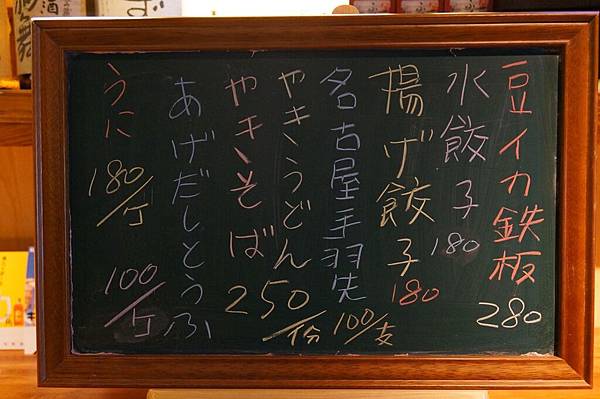 豆イカ鉄板 280
水餃子 180
揚げ餃子 180
名古屋手羽先 100/支
やきうどん
やきそば 250/份
あげだしとうふ 100/ケ
うに 180/ケ